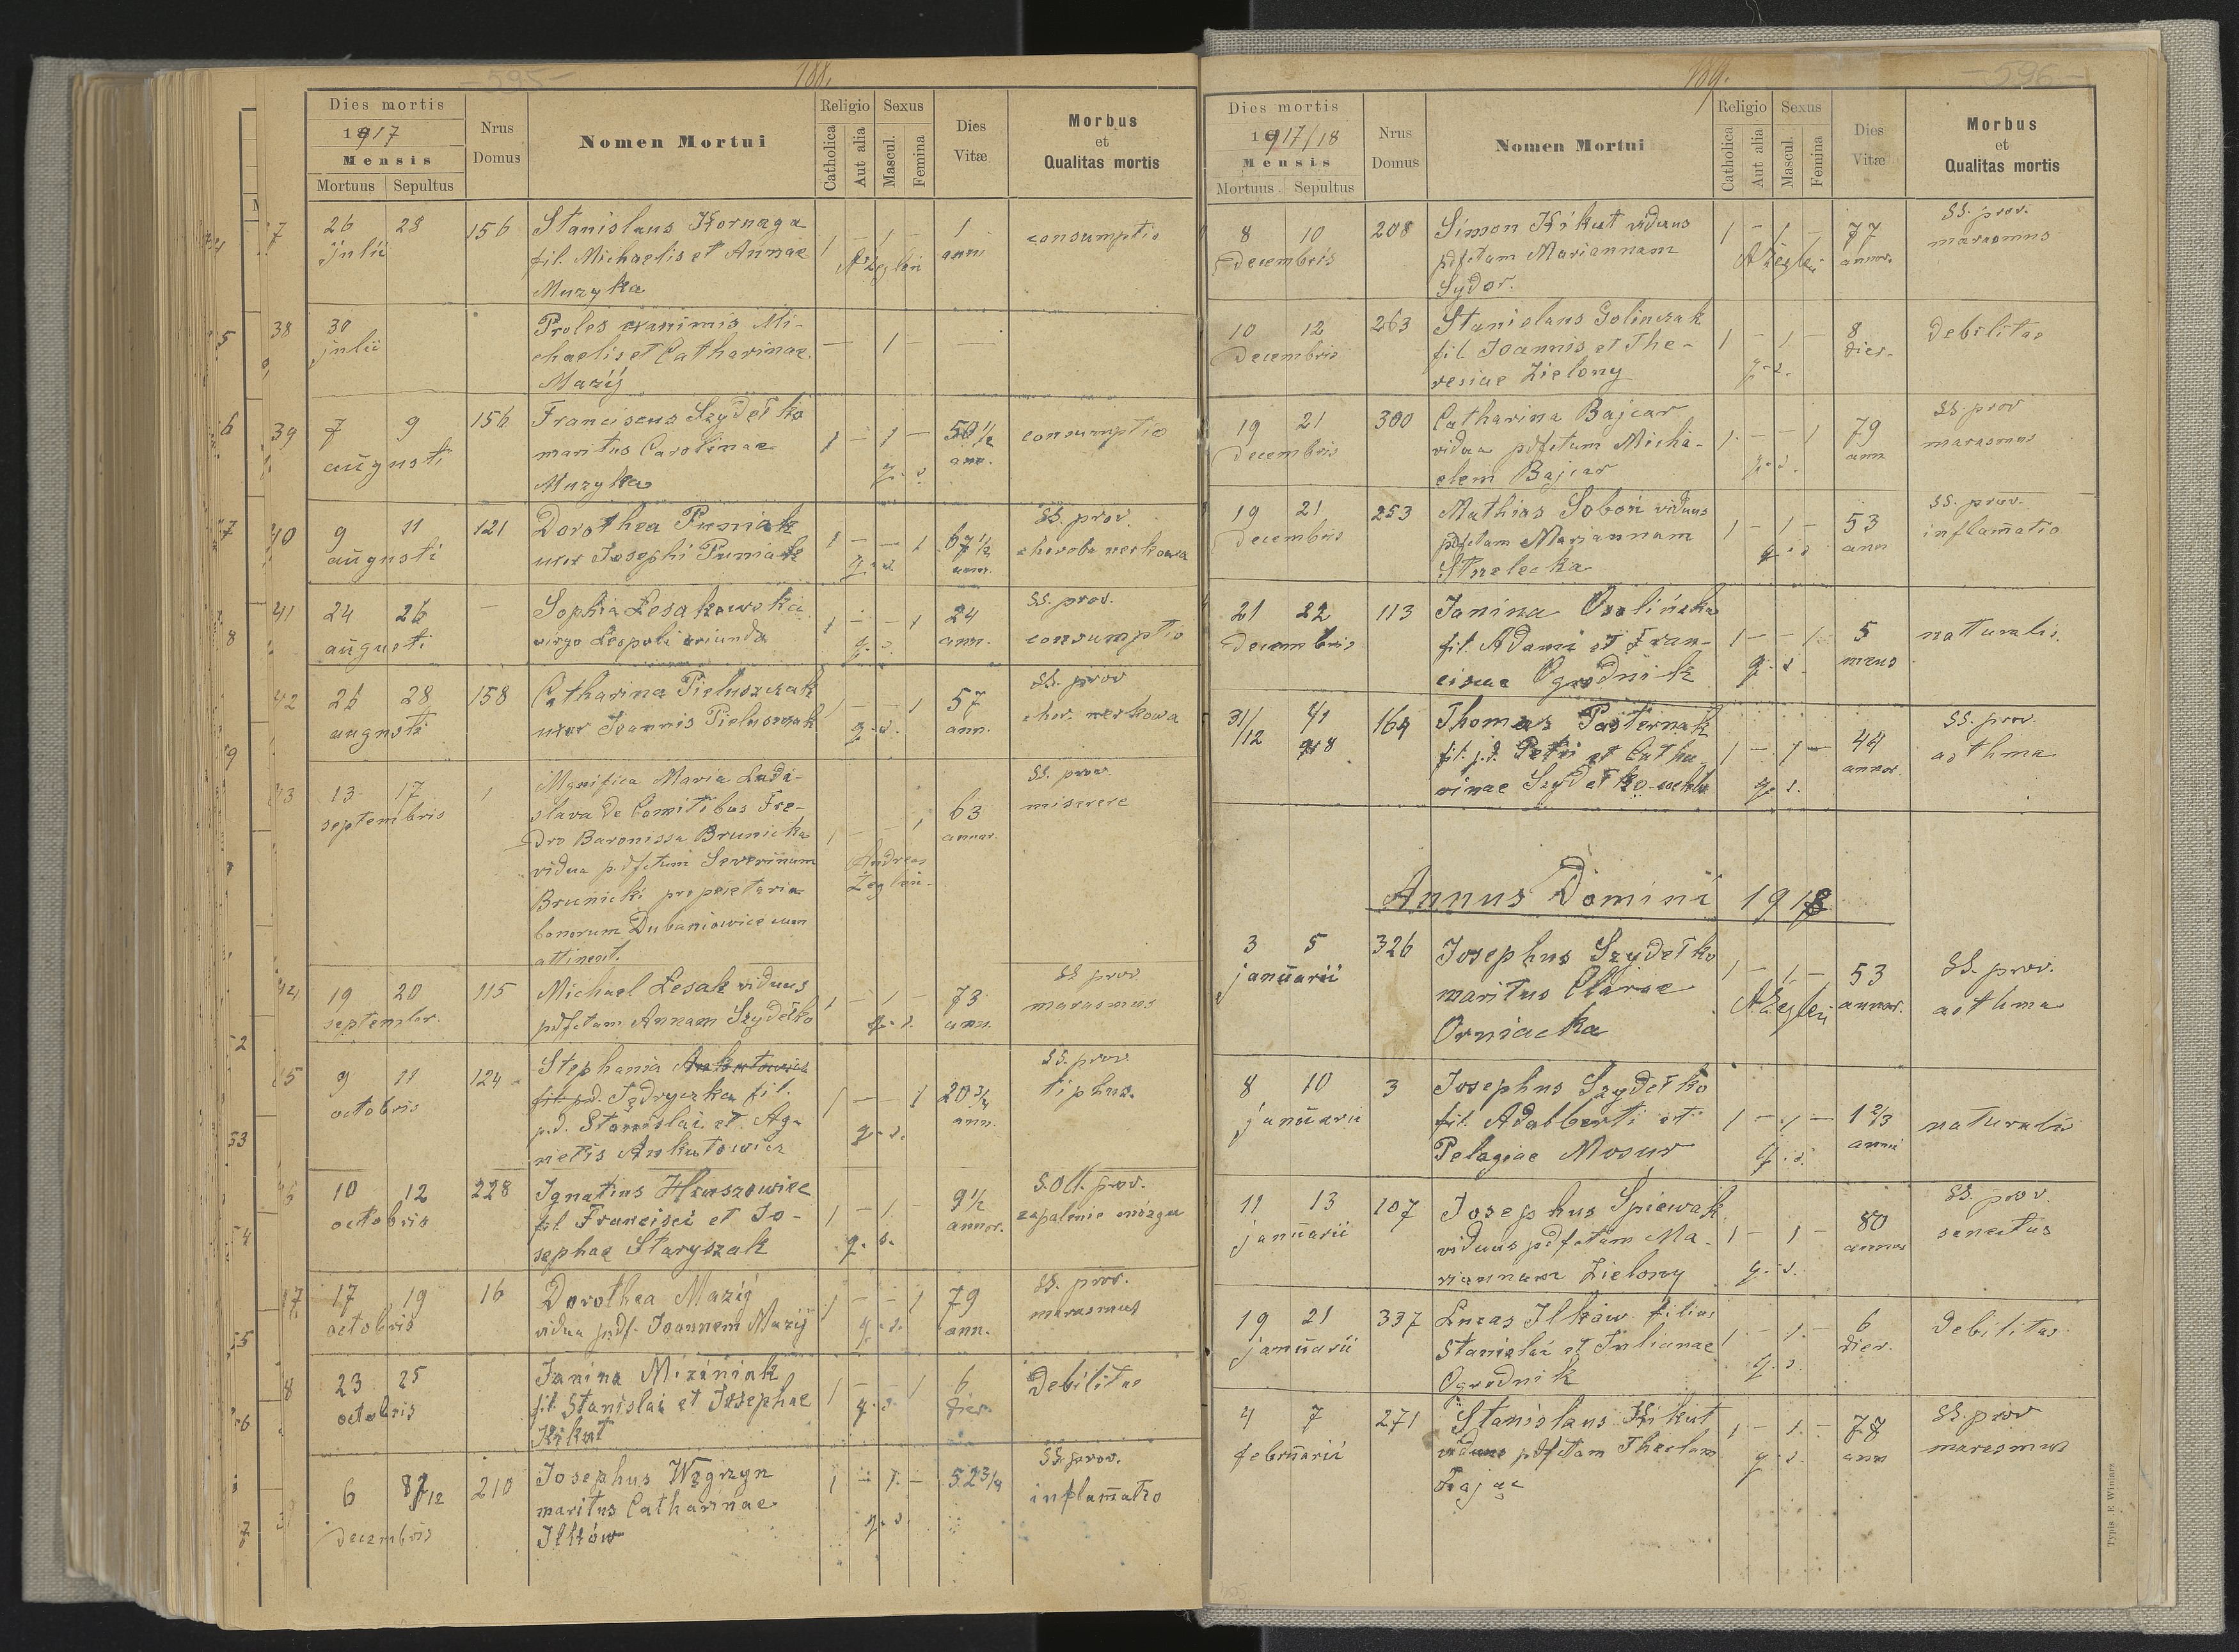 — 595 —
188.
Dies mortis
1917
Mensis
Mortuus Sepultus
Nrus Domus
Nomen Mortui
Religio
Catholica
Aut alia
Sexus
Mascul.
Femina
Dies Vitæ
Morbus
et
Qualitas mortis
26 28 156 Stanislaus Kornaga 1 – 1 – 1 consumptio
julii fil. Michaelis et Annae A Żegleń anni
Muzyka
38 30 Proles exanimis Mi-
julii chaelis et Catharinae — 1 – —
Mazij
39 7 9 156 Franciscus Szydełko
augusti maritus Carolinae 1 – 1 – 50 1/2 consumptio
Muzyka q. s. ann.
40 9 11 121 Dorothea Puniak SS. prov.
augusti uxor Josephi Puniak 1 – – 1 67 1/2 choroba nerkowa
q. s. ann.
41 24 26 — Sophia Lesakowska 1 – – 1 24 SS. prov.
augusti virgo Leopoli oriunda q. s. ann. consumptio
42 26 28 158 Catharina Pieluszczak 1 – – 1 57 SS. prov
augusti uxor Joannis Pieluszczak q. s. ann. chor. nerkowa
43 13 17 1 Magnifica Maria Ladi- SS. prov.
septembris slava de Comitibus Fre- 63 miserere
dro Baronissa Brunicka 1 – – 1 annor.
vidua p. dfctum Severinum Andreas
Brunicki proprietaria Żegleń
bonorum Dubaniowice cum
attinent.
44 19 20 115 Michael Lesak viduus 1 – 1 – 73 SS prov
septembr. pdfctam Annam Szydełko q. s. ann. marasmus
45 9 11 124 Stephania SS. prov.
octobris Jędryczka fil. 1 – – 1 20 3/4 tiphus.
p.d. Stanislai et Ag- q. s. ann.
netis Ankutowicz
46 10 12 228 Ignatius Hruszowiec S.Oll. prov.
octobris fil Francisci et Jo- 1 – 1 – 9 1/2 zapalenie mózgu
sephae Staryszak q. s. annor.
47 17 19 16 Dorothea Mazij 1 – – 1 79 SS. prov.
octobris vidua pdf. Joannem Mazij q. s. ann. marasmus
8 23 25 Janina Miziniak 1 – 1 6 debilitas
octobris fil. Stanislai et Josephae q. s. dier.
Kikut
6 8/12 210 Josephus Węgrzyn 1 – 1 – 52 3/4 SS. prov.
decembris maritus Catharinae q. s. inflam̄atio
Ilków
189.
— 596 —
Dies mortis
1917/18
Mensis
Mortuus Sepultus
Nrus Domus
Nomen Mortui
Religio
Catholica
Aut alia
Sexus
Mascul.
Femina
Dies Vitæ
Morbus
et
Qualitas mortis
8 10 208 Simon Kikut viduus 1 – 1 – 77 SS. prov.
decembris pdfctam Mariannam A Żegleń annor. marasmus
Sydor.
10 12 263 Stanislaus Golinczak 8 debilitas
decembris fil. Joannis et The- 1 – 1 – dier.
resiae Zielony q. s.
19 21 300 Catharina Bajcar SS. prov
decembris vidua pdfctum Micha- 1 – – 1 79 marasmus
elem Bajcar q. s. ann
19 21 253 Mathias Soboń viduus SS. prov.
decembris pdfctam Mariannam 1 – 1 – 53 inflam̄atio
Strzelecka q. s. ann
21 22 113 Janina Osolińska
decembris fil. Adami et Fran- 1 – – 1 5 naturalis.
ciscae Ogrodnik q. s. mens
31/12 4/1 918 164 Thomas Pasternak SS. prov.
fil. p.d. Petri et Catha- 1 – 1 – 44 asthma
rinae Szydełko q. s. annor.
Annus Domini 1918
3 5 326 Josephus Szydełko SS. prov.
januarii maritus Clarae 1 – 1 – 53 asthma
Orniacka A Żegleń annor.
8 10 3 Josephus Szydełko
januarii fil. Adalberti et 1 – 1 – 1 2/3 naturalis
Pelagiae Mosur q. s. anni
11 13 107 Josephus Śpiewak SS. prov.
januarii viduus pdfctam Ma- 1 – 1 – 80 senectus
riannam Zielony q. s. annor
19 21 337 Lucas Ilków filius 6 debilitas
januarii Stanislai et Julianae 1 – 1 – dier.
Ogrodnik q. s.
4 7 271 Stanislaus Kikut 1 – 1 – 78 SS. prov
februarii viduus pdfctam Theclam q. s. ann marasmus
Zając
Typis E. Winiarz